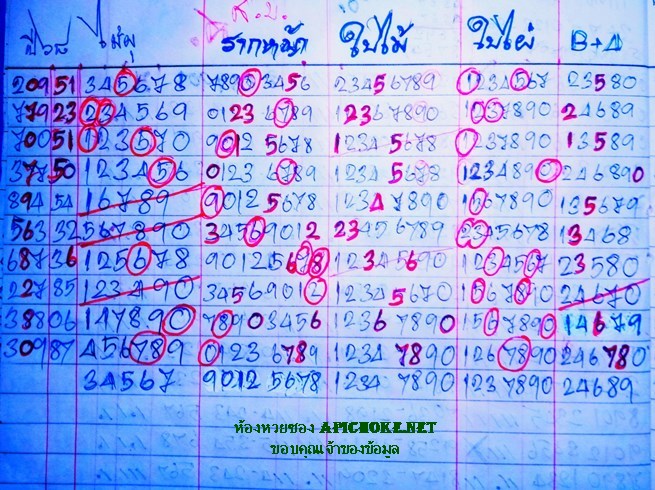 ส.บ.
ไม้ผุ รากหญ้า ใบไม้ ใบไผ่ B+A
209 51 345678 78903456 23456789 1234567 23580
779 23 234569 0123 6789 12367890 1237890 24689
700 51 123570 9012 5678 1234 5678 1237890 13589
377 50 123456 0123 6789 1234 5678 1234890 246890
894 54 16789 9012 5678 1234 7890 1567890 135679
563 32 567890 34569012 23456789 2345678 13468
687 36 125678 90125678 12345690 1234567 23580
127 85 123490 34569012 12345670 1678910 24670
388 06 147890 78903456 1236 7890 1567890 14679
309 87 456789 0123 6789 1234 7890 1267890 246780
34567 9012 5678 1234 7890 1237890 24689
ห้องหวยซอง APICHOKE.NET
ขอบคุณเจ้าของข้อมูล